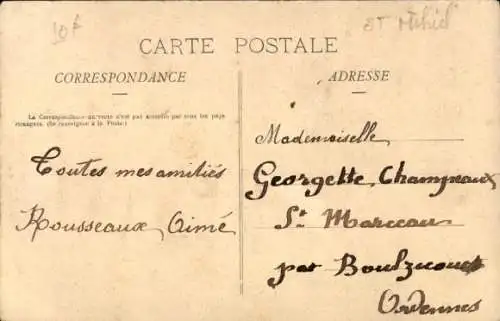 10f
ST Mihiel
CARTE POSTALE
CORRESPONDANCE
ADRESSE
La Correspondance au verso n'est pas acceptée par tous les pays
étrangers. (Se renseigner à la Poste)
Toutes mes amitiés
Rousseaux Aimé
Mademoiselle
Georgette Champeaux
St Marceau
par Boulzicourt
Ardennes